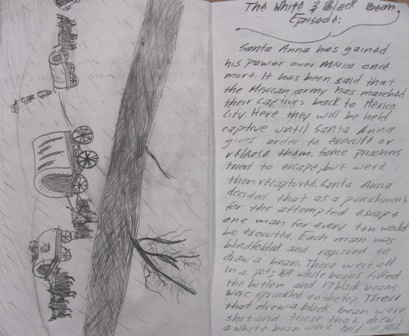 The White & Black Bean
Episode:
Santa Anna has gained
his power over Mexico once
more. It has been said that
the Mexican army has marched
their captives back to Mexico
City. Here they will be held
captive until Santa Anna
gives order to execute or
release them. Some prisoners
tried to escape, but were
then recaptured. Santa Anna
decided that as a punishment
for the attempted escape
one man for every ten would
be executed. Each man was
blindfolded and required to
draw a bean. These were all
in a pot; white beans filled
the bottom and 17 black beans
was sprinkled on the top. Those
that drew a black bean were
shot and those that drew
a white bean were